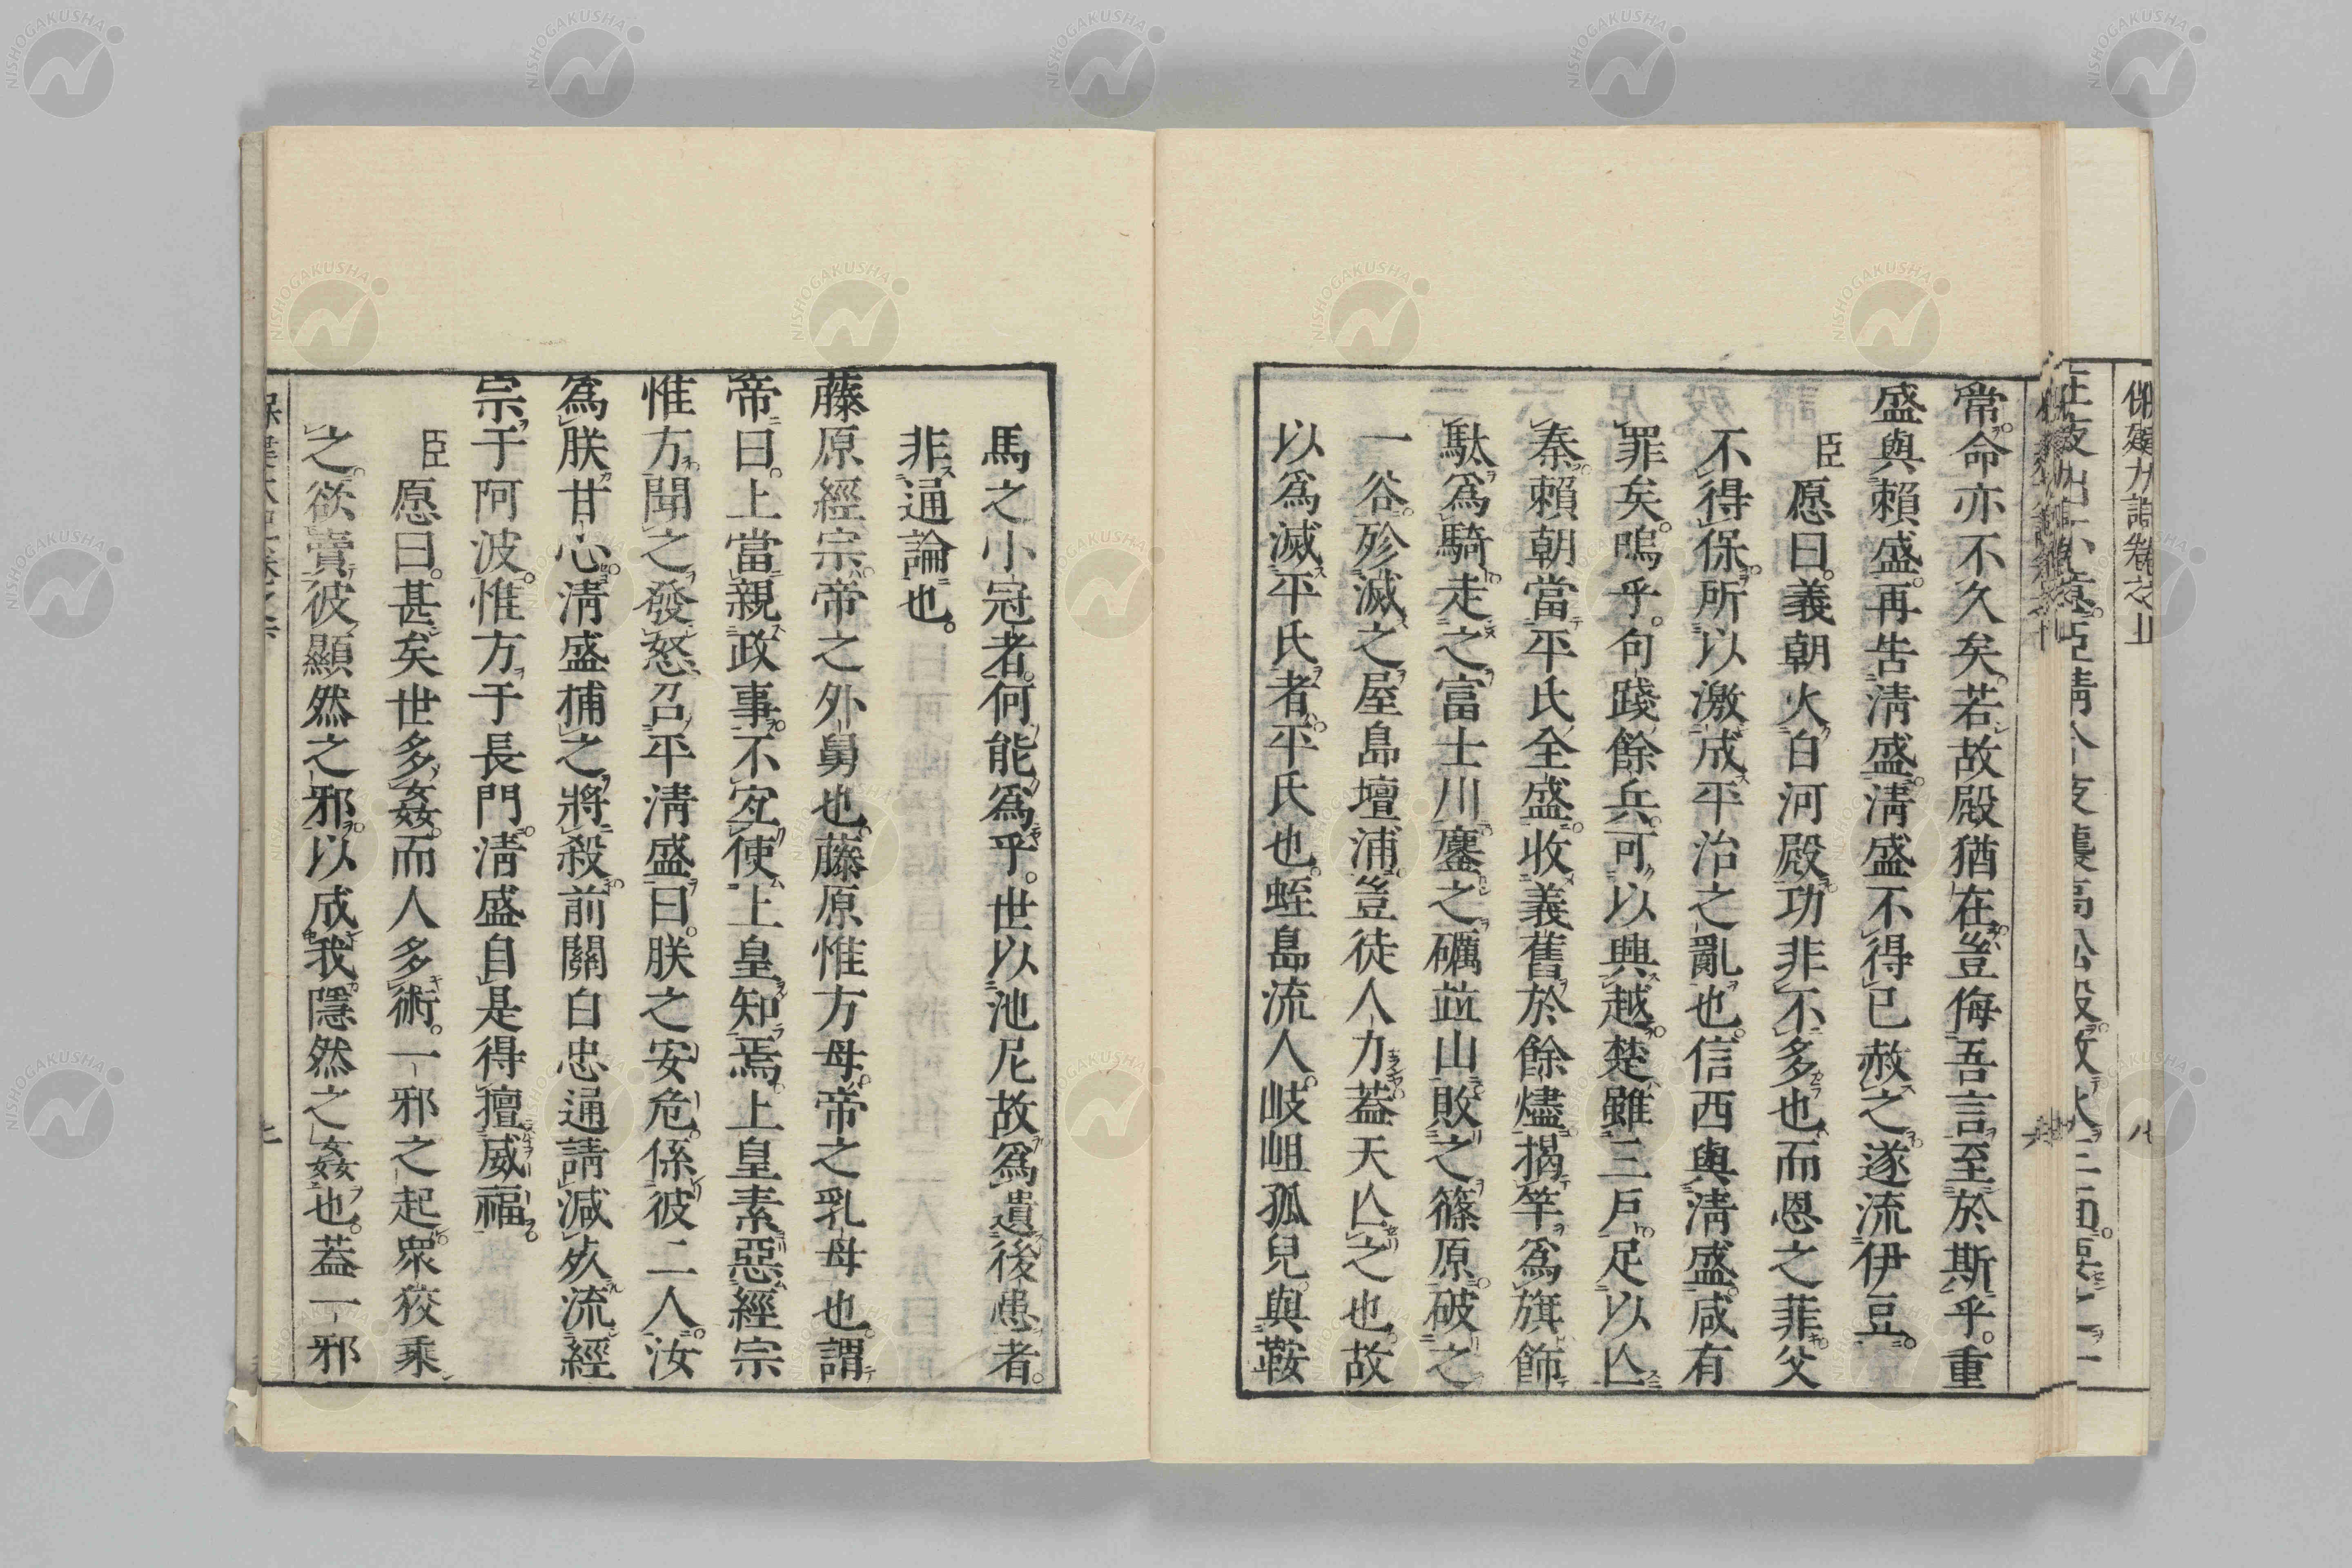 常命亦不久矣。若故殿猶在。豈侮吾言至於斯乎。重
盛與賴盛。再告淸盛。淸盛不得已赦之。遂流伊豆。
臣愿曰。義朝火白河殿。功非不多也。而恩之菲。父
不得保。所以激成平治之亂也。信西與淸盛。咸有
罪矣。嗚乎。句踐餘兵。可以興越。楚雖三戶。足以亾
秦。賴朝當平氏全盛。收義舊於餘燼。揭竿爲旗。飾
馱爲騎。走之富士川。鏖之礪竝山。敗之篠原。破之
一谷。殄滅之屋島壇浦。豈徒人力葢天亾之也。故
以爲滅平氏者。平氏也。蛭島流人。岐岨孤兒。與鞍
馬之小冠者。何能爲乎。世以池尼故爲遺後患者。
非通論也。
藤原經宗。帝之外舅也。藤原惟方母。帝之乳母也。謂
帝曰。上當親政事。不宐使上皇知焉。上皇素惡經宗
惟方。聞之發怒。召平淸盛曰。朕之安危。係彼二人。汝
爲朕甘心。淸盛捕之。將殺。前關白忠通請減死流經
宗于阿波。惟方于長門。淸盛自是得擅威福。
臣愿曰。甚矣世多姦。而人多術。一邪之起。衆狡乘
之。欲賣彼顯然之邪。以成我隱然之姦也。葢一邪